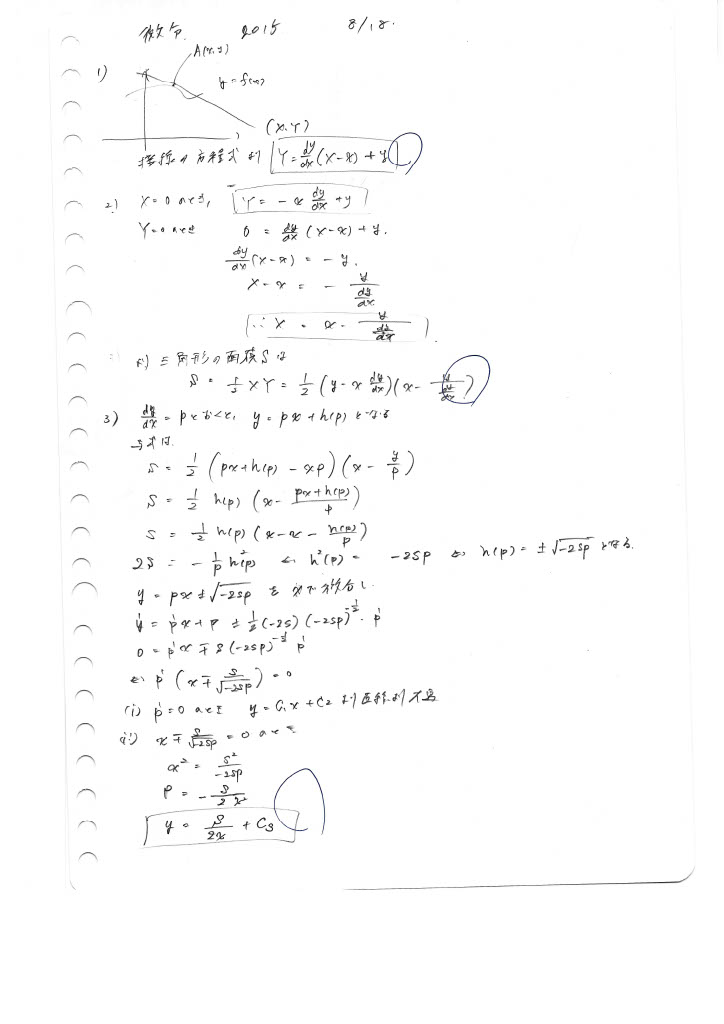 微分 2015 8/18.
A(x,y)
1) y=f(x)
(X,Y)
接線の方程式より Y = dy/dx (X-x) + y
2) X=0 のとき, Y = -x dy/dx + y
Y=0 のとき 0 = dy/dx (X-x) + y.
dy/dx (X-x) = -y.
X-x = - y/(dy/dx)
∴ X = x - y/(dy/dx)
三角形の面積Sは
S = 1/2 XY = 1/2 (y - x dy/dx)(x - y/(dy/dx))
3) dy/dx = p とおくと, y = px + h(p) となる
与式は
S = 1/2 (px+h(p) - xp)(x - y/p)
S = 1/2 h(p) (x - (px+h(p))/p)
S = 1/2 h(p) (x-x- h(p)/p)
2S = - 1/p h²(p) ⇔ h²(p) = -2Sp ⇔ h(p) = ±√-2Sp となる.
y = px ± √-2Sp を xで微分し
y' = p'x + p ± 1/2 (-2S)(-2Sp)^{-1/2} · p'
0 = p'x ∓ S(-2Sp)^{-1/2} p'
⇔ p' (x ∓ S/√-2Sp) = 0
(i) p'=0 のとき y = C₁x + C₂ より直線より不適
(ii) x ∓ S/√-2Sp = 0 のとき
x² = S²/-2Sp
p = - S/2x²
y = S/2x + C₃